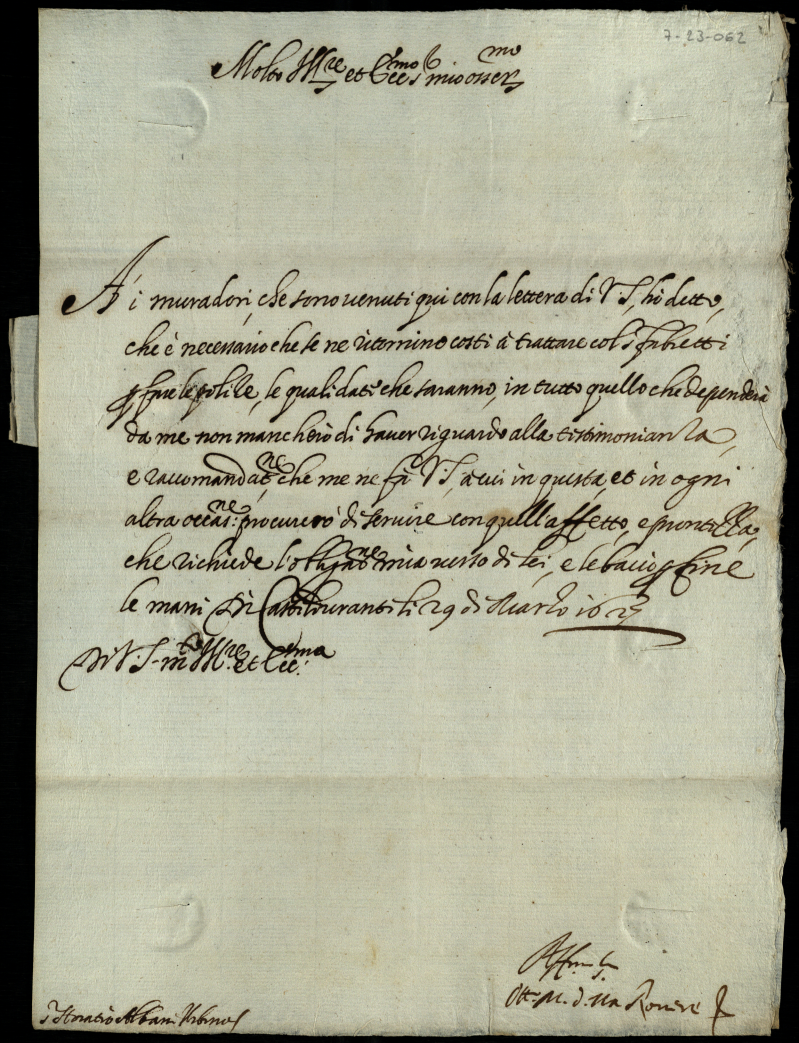 7-23-062
Molto Ill.re et Ecc.mo S.r mio oss.mo
A' i muradori, che sono venuti qui con la lettera di V.S., hò detto,
che è necessario che se ne ritornino costì à trattare col S.r Fabretti
p far le polile, le quali date che saranno, in tutto quello che dependerà
da me non mancherò di haver riguardo alla testimonianza,
e raccomandat.ne, che me ne fà V.S., à cui in questa, et in ogni
altra occas.ne procurerò di servire con quell'affetto, e prontezza,
che richiede l'obligat.ne mia verso di lei, e le bacio p fine
le mani Di Casteldurante li 29 di Marzo 162
Di V.S. m.to Ill.re et Ecc.ma
Aff.mo S.
Ott. M. d. lla Rovere
S.r Horatio Albani Urbino